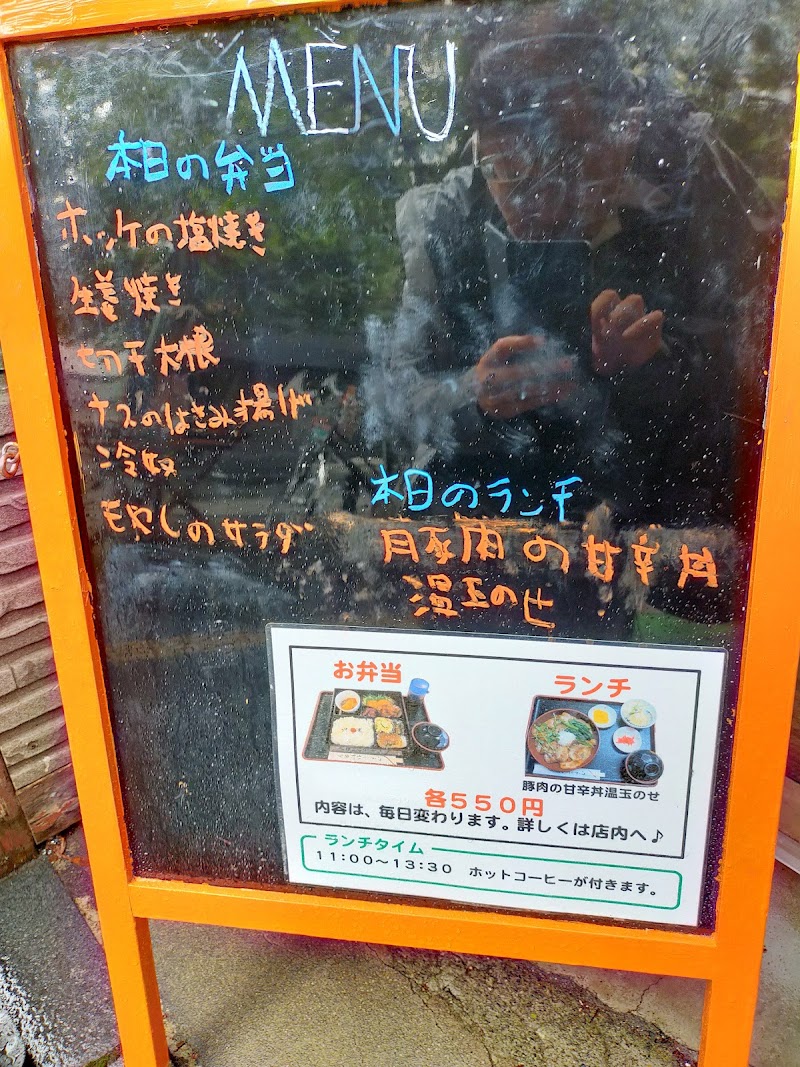 MENU
本日の弁当
ホッケの塩焼き
生姜焼き
切干大根
ナスのはさみ揚げ
冷奴
もやしのサラダ
本日のランチ
豚肉の甘辛丼
温玉のせ
お弁当
ランチ
豚肉の甘辛丼温玉のせ
各550円
内容は、毎日変わります。詳しくは店内へ♪
ランチタイム
11:00～13:30 ホットコーヒーが付きます。